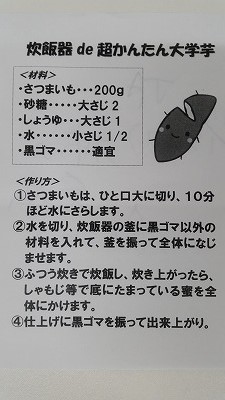 炊飯器 de 超かんたん大学芋
<材料>
・さつまいも・・・200g
・砂糖・・・・・大さじ 2
・しょうゆ・・・大さじ 1
・水・・・・・小さじ 1/2
・黒ゴマ・・・・・適宜
<作り方>
①さつまいもは、ひと口大に切り、10分
ほど水にさらします。
②水を切り、炊飯器の釜に黒ゴマ以外の
材料を入れて、釜を振って全体になじ
ませます。
③ふつう炊きで炊飯し、炊き上がったら、
しゃもじ等で底にたまっている蜜を全体
にかけます。
④仕上げに黒ゴマを振って出来上がり。